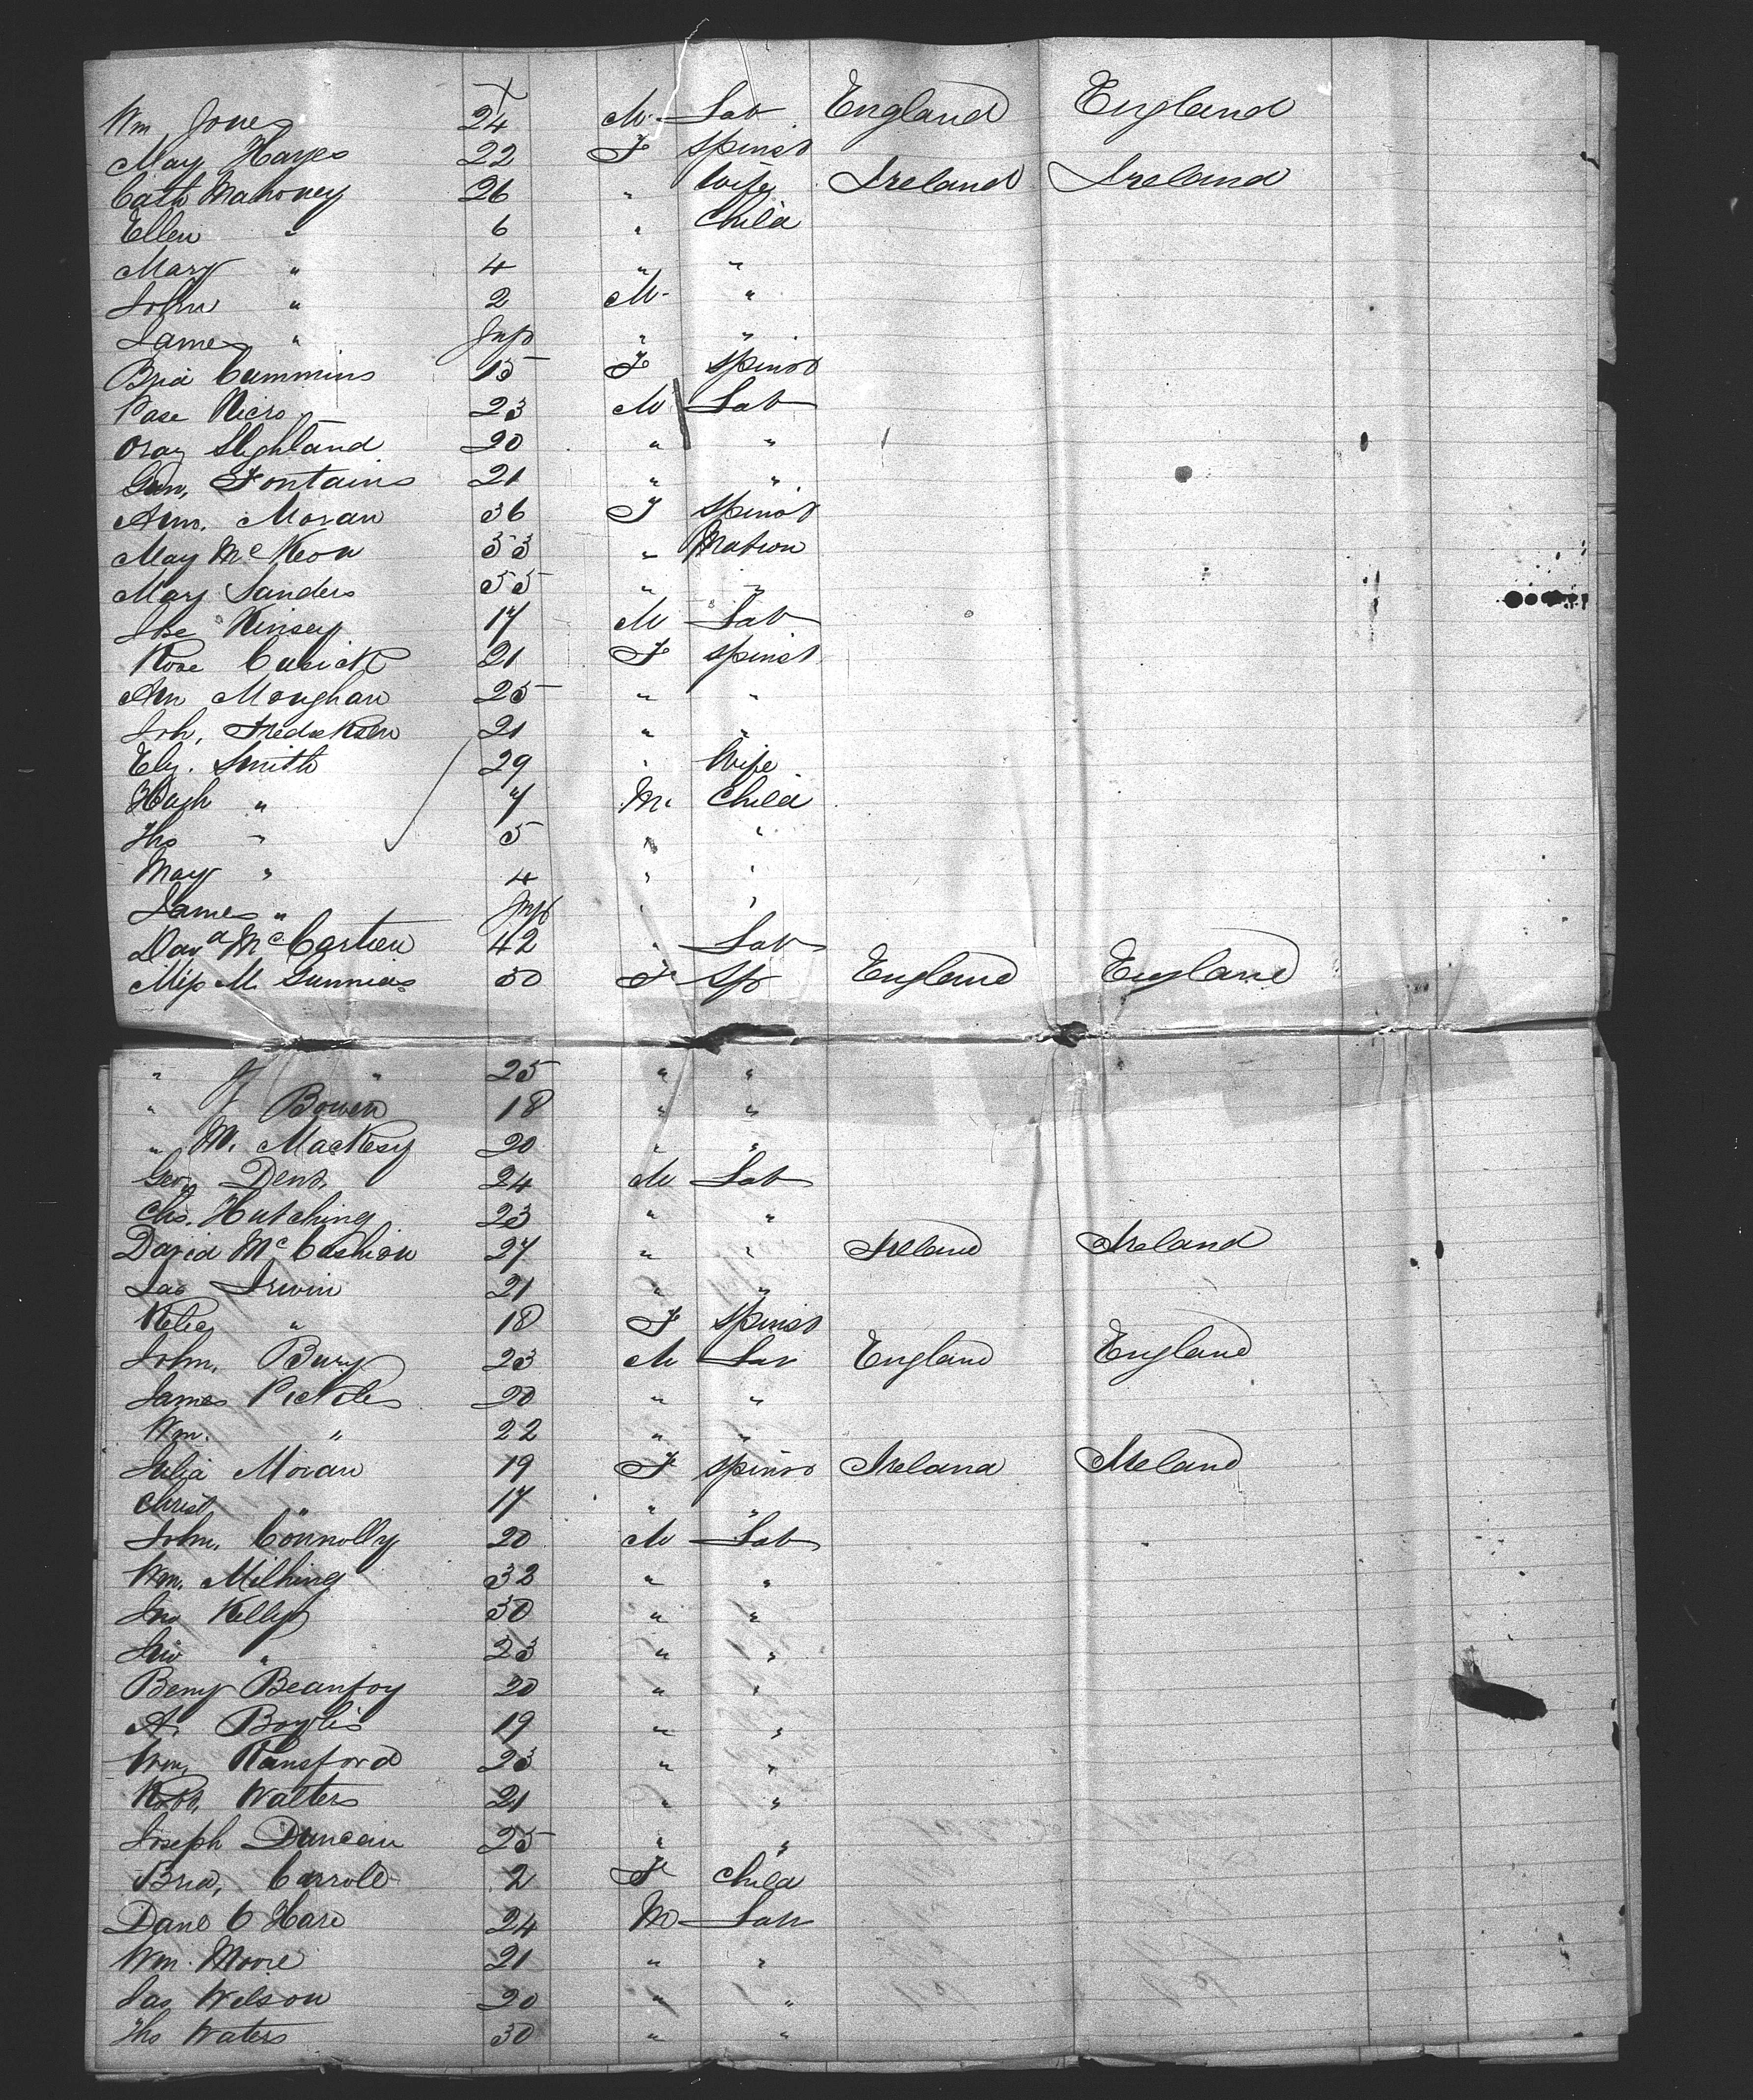 Wm Jones 24 M Lab England England
May Hayes 22 F Spinst
Cath Mahoney 26 " Wife Ireland Ireland
Ellen " 6 " Child
Mary " 4 " "
John " 2 M "
James " Inft " "
Brid Cummins 15 F Spinst
23 M Lab
20 " "
Fontains 21 " "
Ann Moran 36 F Spinst
May McKeon 33 " Matron
Mary Sanders 55 " "
Kinsey 17 M Lab
Rose Cusick 21 F Spinst
Ann Monghan 25 " "
Joh, 21 " "
Elz. Smith 29 " Wife
Hugh " 7 M Child
Ths " 5 " "
May " 4 " "
James " Inft " "
42 " Lab
Miss M. 30 F Sp England England
" J " 25 " "
" J Bowen 18 " "
" M. Mackesy 20 " "
Geo Dent 24 M Lab
Chs. Hutching 23 " "
David McCashion 27 " " Ireland Ireland
Jas Irwin 21 " "
" 18 F Spinst
John, Bury 23 M Lab England England
James Pickles 20 " "
Wm. " 22 " "
Julia Moran 19 F Spinst Ireland Ireland
Christ, " 17 " "
John, Connolly 20 M Lab
Wm. Milhing 32 " "
Jno Kelly 30 " "
Jno " 23 " "
Benj Beaufoy 20 " "
A. 19 " "
Wm. Ransford 23 " "
Robt, Walters 21 " "
Joseph Duncan 25 " "
Brid, Carroll 2 F Child
Danl O Hare 24 M Lab
Wm. Moore 21 " "
Jas Wilson 20 " "
Ths Waters 30 " "